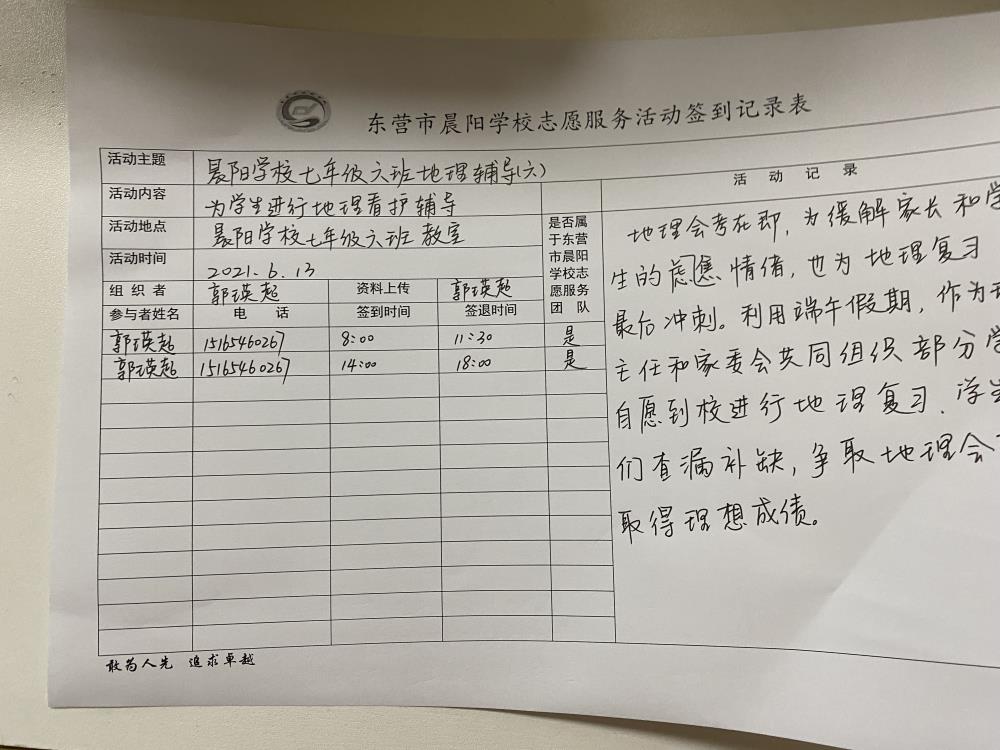 东营市晨阳学校志愿服务活动签到记录表
活动主题 晨阳学校七年级六班地理辅导(六)
活动内容 为学生进行地理看护辅导
活动地点 晨阳学校七年级六班教室
活动时间 2021.6.13
组织者 郭瑛超 资料上传 郭瑛超
参与者姓名 电话 签到时间 签退时间
是否属
于东营
市晨阳
学校志
愿服务
团队
郭瑛超 15165460267 8:00 11:30 是
郭瑛超 15165460267 14:00 18:00 是
活动记录
地理会考在即,为缓解家长和学
生的焦虑情绪,也为地理复习
最后冲刺。利用端午假期,作为
主任和家委会共同组织部分学
自愿到校进行地理复习、学生
们查漏补缺,争取地理会
取得理想成绩。
敢为人先 追求卓越